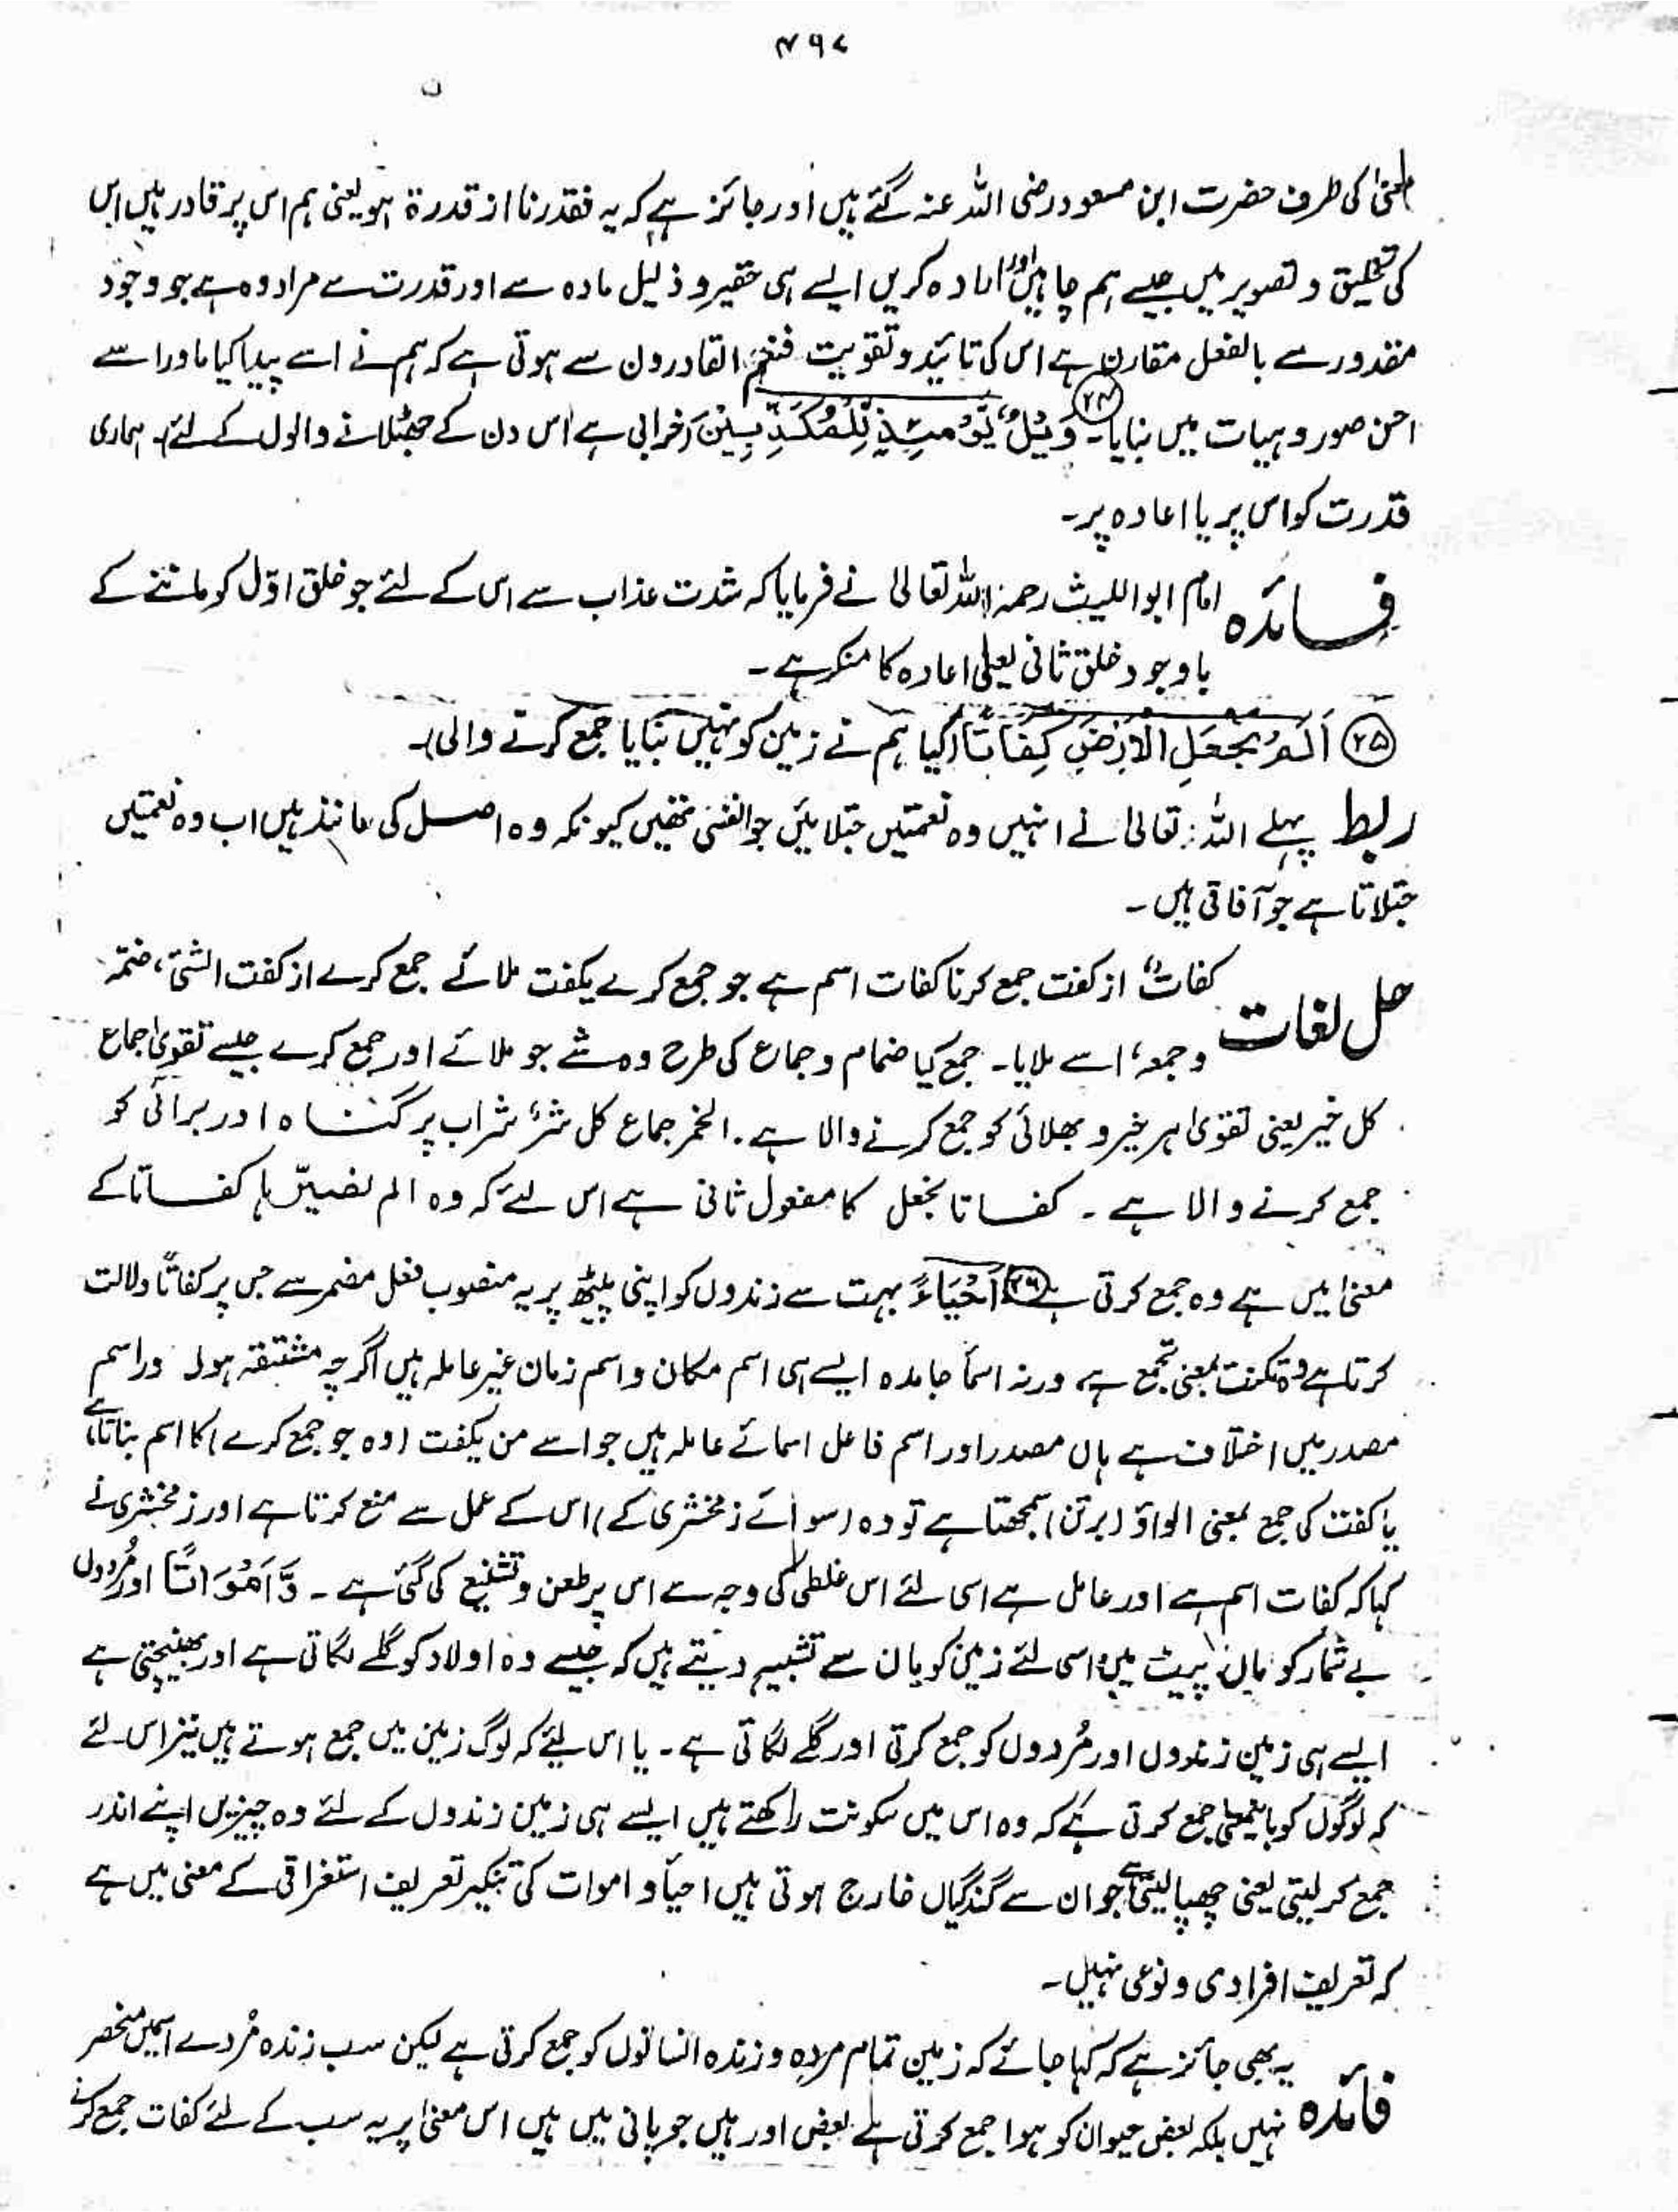 ۴۹۷
معنیٰ کی طرف حضرت ابن مسعود رضی اللہ عنہ گئے ہیں اور جائز ہے کہ یہ فقدرنا از قدرۃ ہو یعنی ہم اس پر قادر ہیں اس
کی تخلیق و تصویر میں جیسے ہم چاہیں اور ارادہ کریں ایسے ہی حقیر و ذلیل مادہ سے اور قدرت سے مراد وہ ہے جو وجود
مقدور سے بالفعل مقارن ہے اس کی تائید و تقویت فنعم القادرون سے ہوتی ہے کہ ہم نے اسے پیدا کیا اور اسے
احسن صور و ہیات میں بنایا۔ ۲۴ وَيْلٌ يَّوْمَئِذٍ لِّلْمُكَذِّبِيْنَ (خرابی ہے اس دن کے جھٹلانے والوں کے لئے)۔ ہماری
قدرت کو اس پر یا اعادہ پر۔
فائدہ امام ابو اللیث رحمۃ اللہ تعالیٰ نے فرمایا کہ شدت عذاب سے اس کے لئے جو خلق اوّل کو ماننے کے
باوجود خلق ثانی یعنی اعادہ کا منکر ہے۔
۲۵ اَلَمْ نَجْعَلِ الْاَرْضَ كِفَاتًا (کیا ہم نے زمین کو نہیں بنایا جمع کرنے والی)۔
ربط پہلے اللہ تعالیٰ نے انہیں وہ نعمتیں جتلائیں جو انفسی تھیں کیونکہ وہ اصل کی مانند ہیں اب وہ نعمتیں
جتلاتا ہے جو آفاقی ہیں۔
حل لغات کفاتٌ از کفت جمع کرنا کفات اسم ہے جو جمع کرے یکفت ملائے جمع کرے از کفت الشئ، ضمّہ
وجمعہ، اسے ملایا۔ جمع کیا ضمام و جماع کی طرح وہ شے جو ملائے اور جمع کرے جیسے تقویٰ جماع
کل خیر یعنی تقویٰ ہر خیر و بھلائی کو جمع کرنے والا ہے۔ الخمر جماع کل شرٍ شراب ہر گناہ اور برائی کو
جمع کرنے والا ہے۔ کفاتا نجعل کا مفعول ثانی ہے اس لئے کہ وہ الم نصیّر ہا کفاتا کے
معنیٰ میں ہے وہ جمع کرتی ہے ۲۶ اَحْيَاءً بہت سے زندوں کو اپنی پیٹھ پر یہ منصوب فعل مضمر سے جس پر کفاتًا دلالت
کرتا ہے وہ تکفت بمعنی تجمع ہے، ورنہ اسمأ جامدہ ایسے ہی اسم مکان و اسم زمان غیر عاملہ ہیں اگرچہ مشتقہ ہوں اور اسم
مصدر میں اختلاف ہے ہاں مصدر اور اسم فاعل اسمائے عاملہ ہیں جو اسے من یکفت (وہ جو جمع کرے) کا اسم بناتا ہے
یا کفت کی جمع بمعنی الواؤ (برتن) سمجھتا ہے تو وہ (سوائے زمخشری کے) اس کے عمل سے منع کرتا ہے اور زمخشری نے
کہا کہ کفات اسم ہے اور عامل ہے اسی لئے اس غلطی کی وجہ سے اس پر طعن و تشنیع کی گئی ہے۔ وَّاَمْوَاتًا اور مُردوں
بے شمار کو پیٹ میں اسی لئے زمین کو ماں سے تشبیہ دیتے ہیں کہ جیسے وہ اولاد کو گلے لگاتی ہے اور بھینچتی ہے
ایسے ہی زمین زندوں اور مُردوں کو جمع کرتی اور گلے لگاتی ہے۔ یا اس لیئے کہ لوگ زمین میں جمع ہوتے ہیں نیز اس لئے
کہ لوگوں کو بایمعنی جمع کرتی ہے کہ وہ اس میں سکونت رکھتے ہیں ایسے ہی زمین زندوں کے لئے وہ چیزیں اپنے اندر
جمع کر لیتی یعنی چھپا لیتی ہے جو ان سے گندگیاں خارج ہوتی ہیں احیأ و اموات کی تنکیر تعریف استغراقی کے معنی میں ہے
کہ تعریف افرادی و نوعی نہیں۔
فائدہ یہ بھی جائز ہے کہ کہا جائے کہ زمین تمام مردہ و زندہ انسانوں کو جمع کرتی ہے لیکن سب زندہ مُردے اسمیں منحصر
نہیں بلکہ بعض حیوان کو ہوا جمع کرتی ہے بعض اور ہیں جو پانی میں ہیں اس معنیٰ پر یہ سب کے لئے کفات جمع کرنے